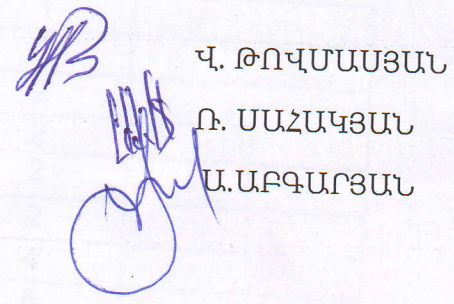 Վ. ԹՈՎՄԱՍՅԱՆ
Ռ. ՍԱՀԱԿՅԱՆ
Ա.ԱԲԳԱՐՅԱՆ